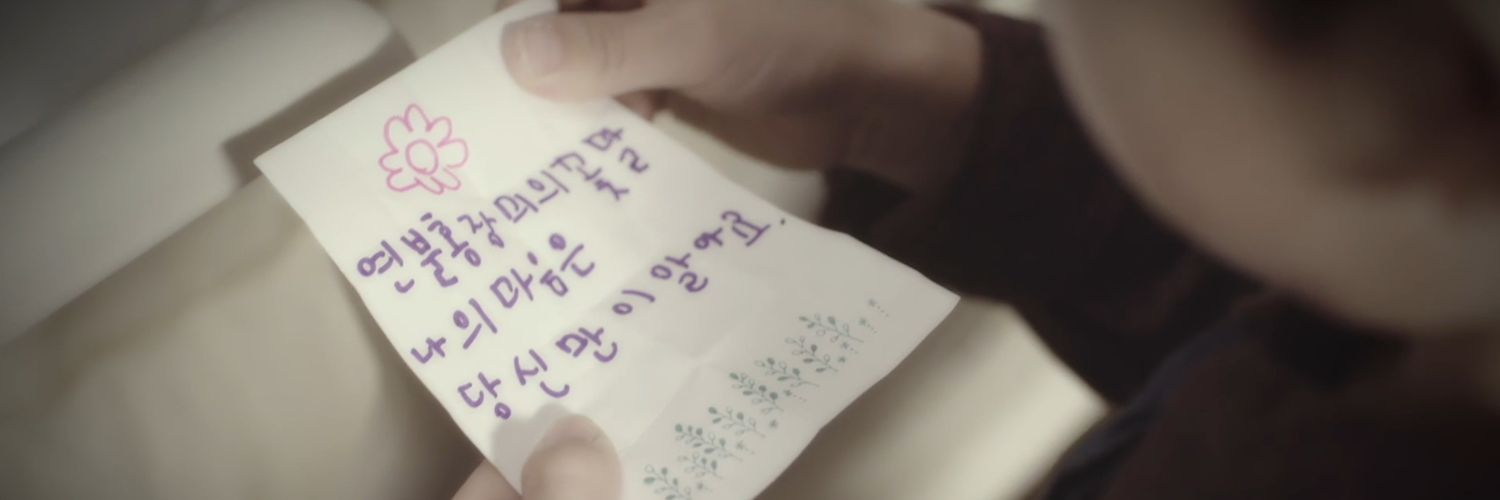 연분홍장미의꽃말
나의 마음은
당신만이 알아요.